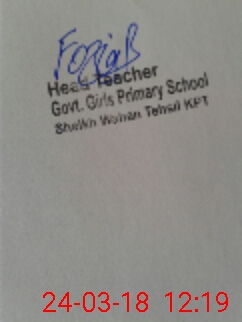 FoziaB
Head Teacher
Govt. Girls Primary School
Sheikh Wahan Tehsil KPT
24-03-18 12:19